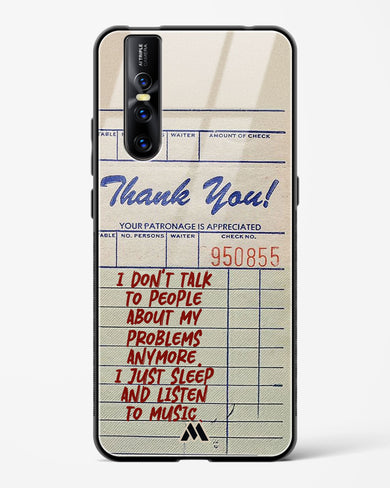 AI TRIPLE
CAMERA
TABLE PERSONS WAITER AMOUNT OF CHECK
Thank You!
YOUR PATRONAGE IS APPRECIATED
TABLE NO. PERSONS WAITER CHECK NO.
950855
I DON'T TALK
TO PEOPLE
ABOUT MY
PROBLEMS
ANYMORE.
I JUST SLEEP
AND LISTEN
TO MUSIC